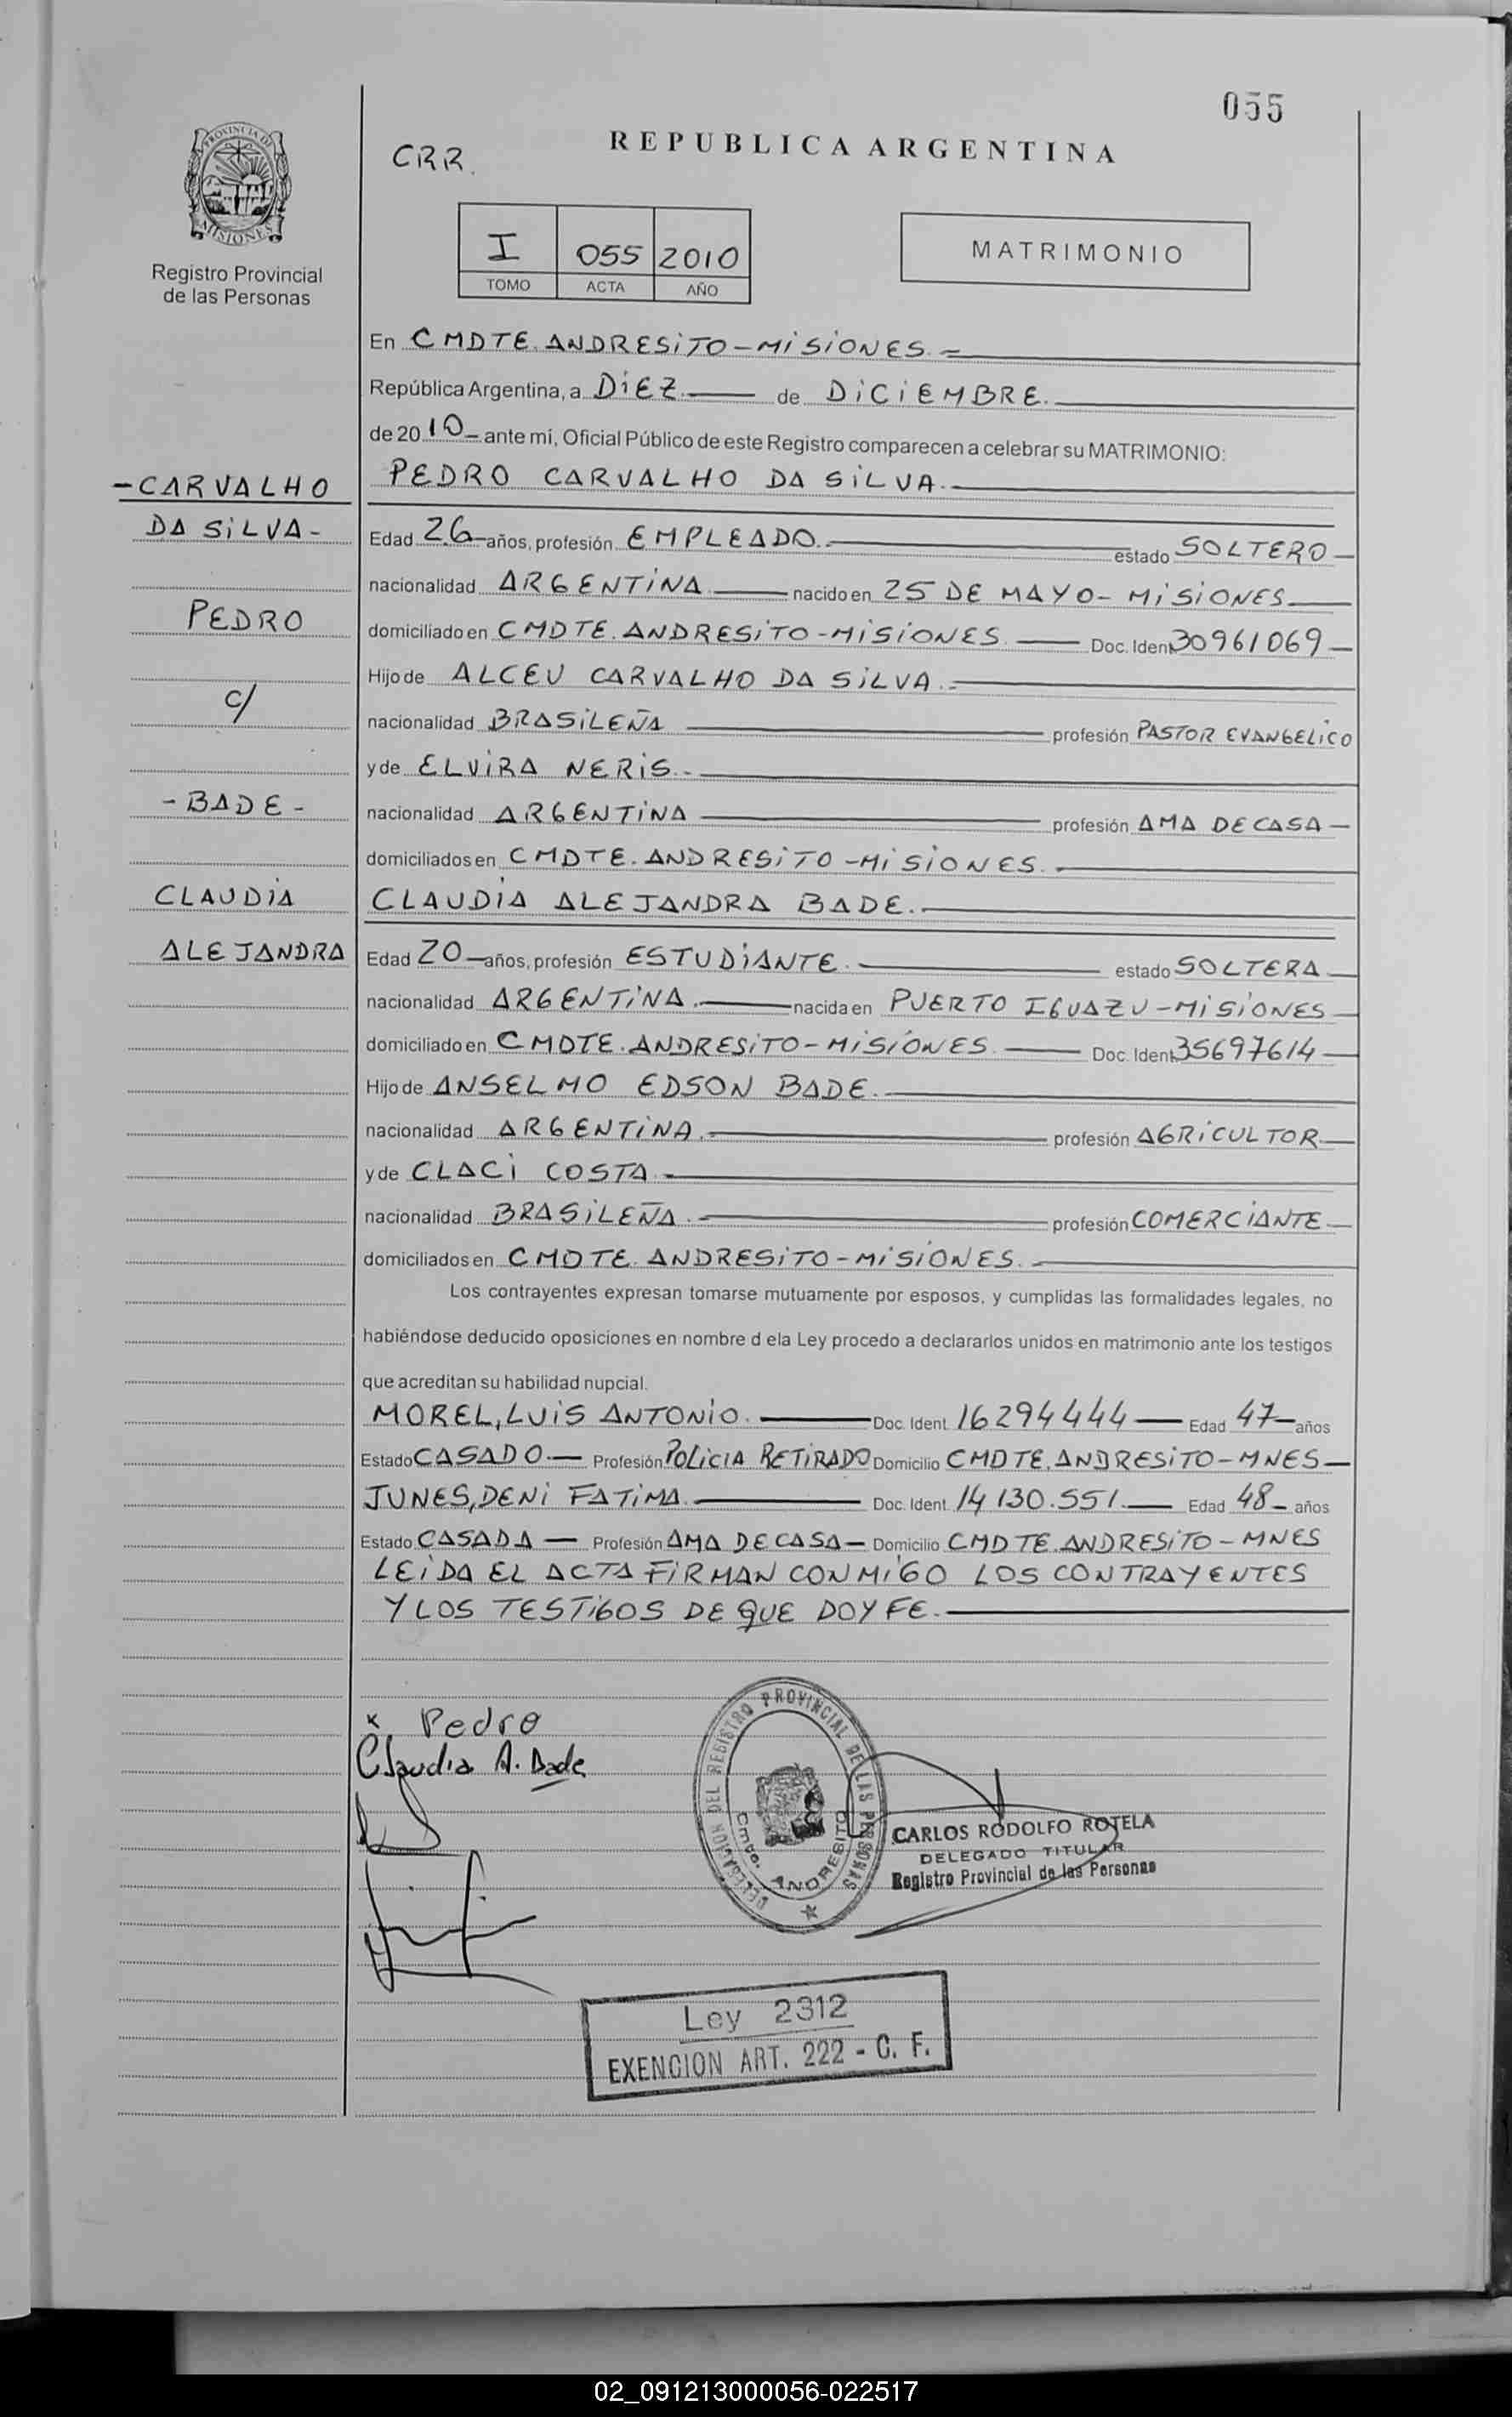 055
REPUBLICA ARGENTINA
CRR.
PROVINCIA DE
MISIONES
Registro Provincial
de las Personas
I 055 2010
TOMO ACTA AÑO
MATRIMONIO
En CMDTE. ANDRESITO - MISIONES.
República Argentina, a DIEZ de DICIEMBRE.
de 2010 ante mí, Oficial Público de este Registro comparecen a celebrar su MATRIMONIO:
PEDRO CARVALHO DA SILVA.
- CARVALHO
DA SILVA -
PEDRO
c/
- BADE -
CLAUDIA
ALEJANDRA
Edad 26 años, profesión EMPLEADO. estado SOLTERO
nacionalidad ARGENTINA nacido en 25 DE MAYO - MISIONES
domiciliado en CMDTE. ANDRESITO - MISIONES. Doc. Ident. 30961069
Hijo de ALCEU CARVALHO DA SILVA.
nacionalidad BRASILEÑA profesión PASTOR EVANGELICO
y de ELVIRA NERIS.
nacionalidad ARGENTINA profesión AMA DE CASA
domiciliados en CMDTE. ANDRESITO - MISIONES.
CLAUDIA ALEJANDRA BADE.
Edad 20 años, profesión ESTUDIANTE. estado SOLTERA
nacionalidad ARGENTINA. nacida en PUERTO IGUAZU - MISIONES
domiciliado en CMDTE. ANDRESITO - MISIONES. Doc. Ident. 35697614
Hijo de ANSELMO EDSON BADE.
nacionalidad ARGENTINA. profesión AGRICULTOR
y de CLACI COSTA.
nacionalidad BRASILEÑA. profesión COMERCIANTE
domiciliados en CMDTE. ANDRESITO - MISIONES.
Los contrayentes expresan tomarse mutuamente por esposos, y cumplidas las formalidades legales, no
habiéndose deducido oposiciones en nombre d ela Ley procedo a declararlos unidos en matrimonio ante los testigos
que acreditan su habilidad nupcial.
MOREL, LUIS ANTONIO. Doc. Ident. 16294444 Edad 47 años
Estado CASADO. Profesión POLICIA RETIRADO Domicilio CMDTE. ANDRESITO - MNES
JUNES, DENI FATIMA. Doc. Ident. 14130.551. Edad 48 años
Estado CASADA Profesión AMA DE CASA Domicilio CMDTE. ANDRESITO - MNES
LEIDA EL ACTA FIRMAN CONMIGO LOS CONTRAYENTES
Y LOS TESTIGOS DE QUE DOY FE.
x Pedro
Claudia A. Bade
DELEGACION DEL REGISTRO PROVINCIAL DE LAS PERSONAS
Cmte. ANDRESITO
CARLOS RODOLFO ROTELA
DELEGADO TITULAR
Registro Provincial de las Personas
Ley 2312
EXENCION ART. 222 - C. F.
02_091213000056-022517